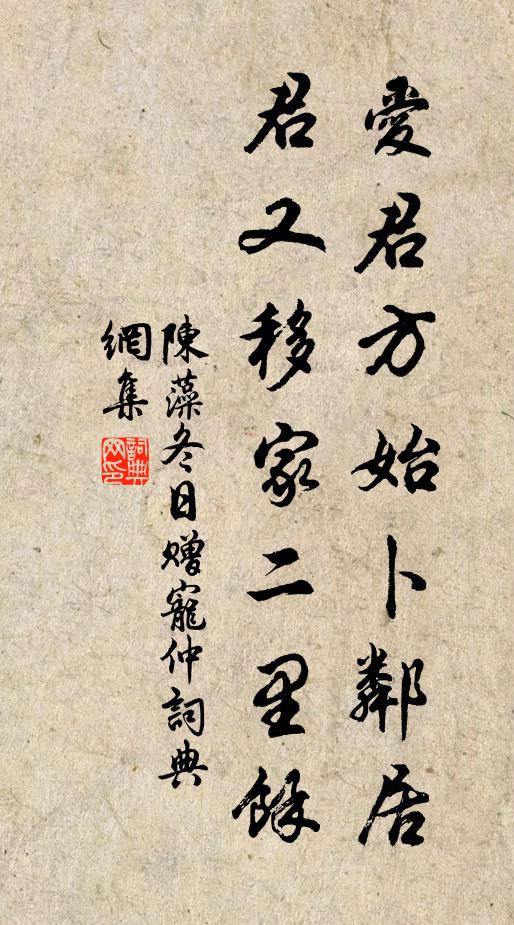 愛君方始卜鄰居
君又移家二里餘
陳藻冬日贈寵仲詞典
網集
詞典網印